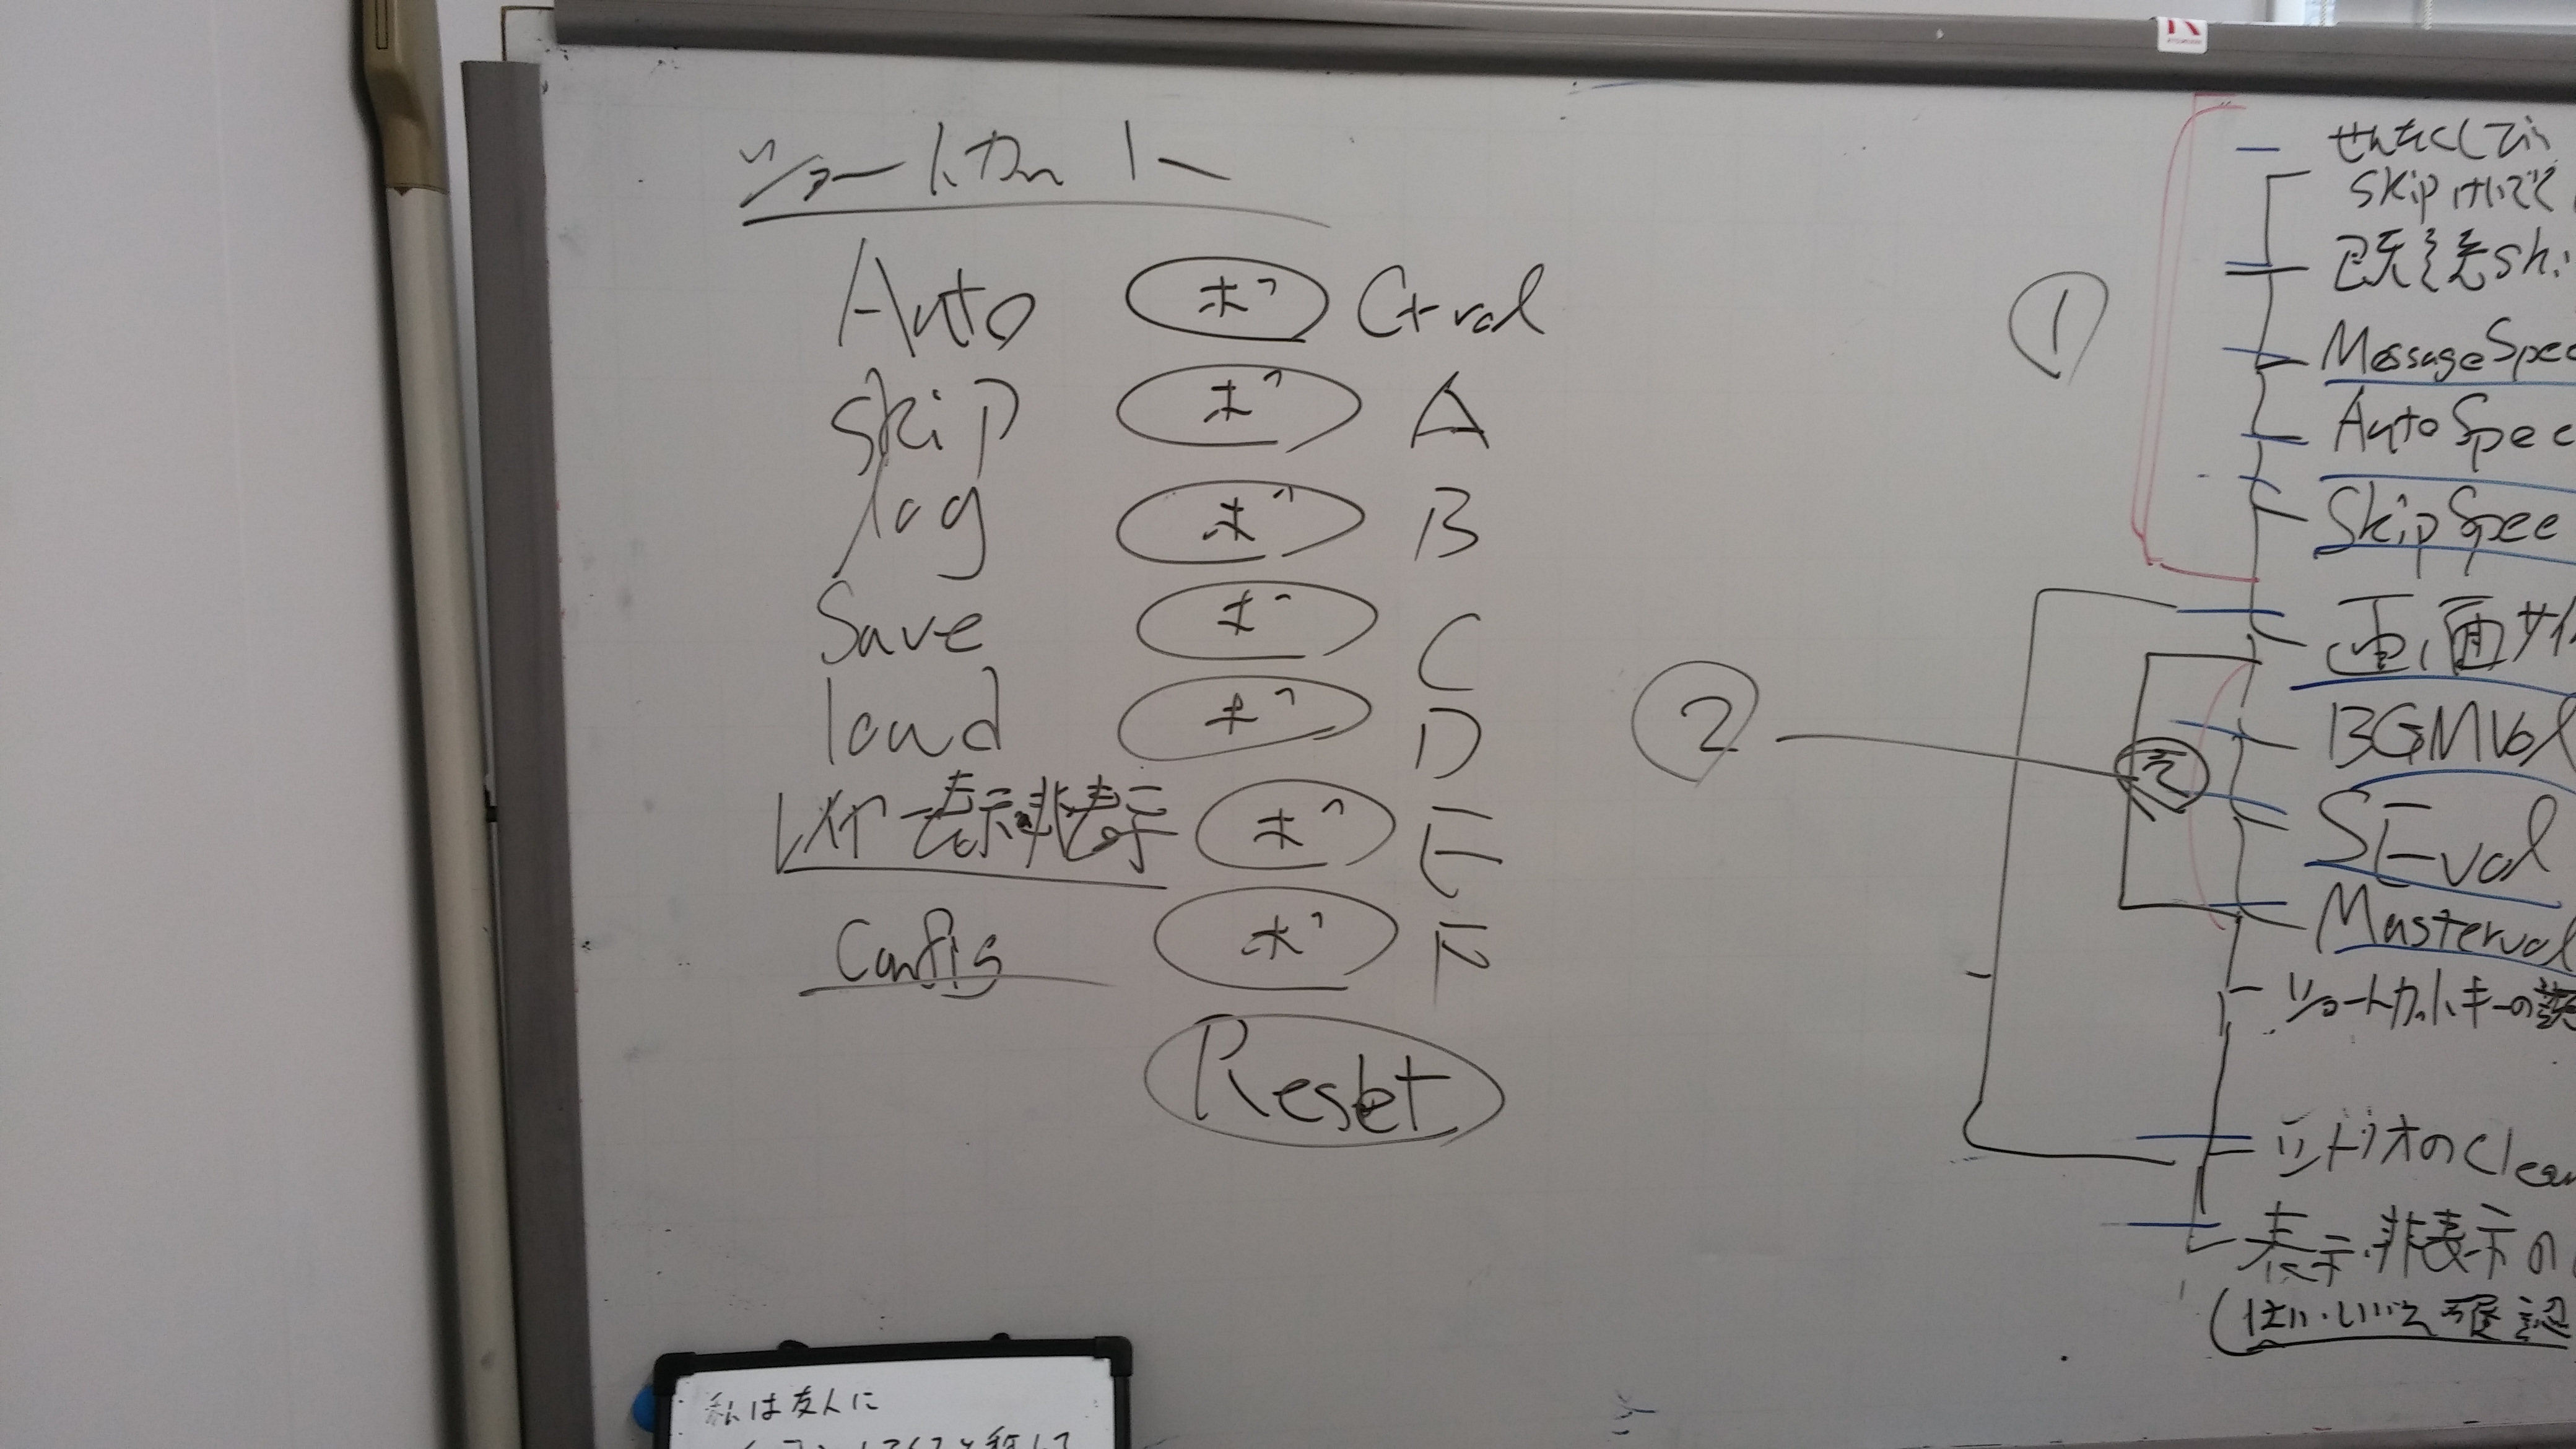 ショートカット
Auto ボ Ctrol
skip ボ A
log ボ B
Save ボ C
load ボ D
表示非表示 ボ E
Config ボ F
Reset
①
②
skip
既読 Ski
MessageSpee
AutoSpee
SkipSpee
画面サイ
BGMVol
SEvol
Mastervol
ショートカットキーの
シナリオのClea
表示・非表示の
(はい・いいえ確認
私は友人に